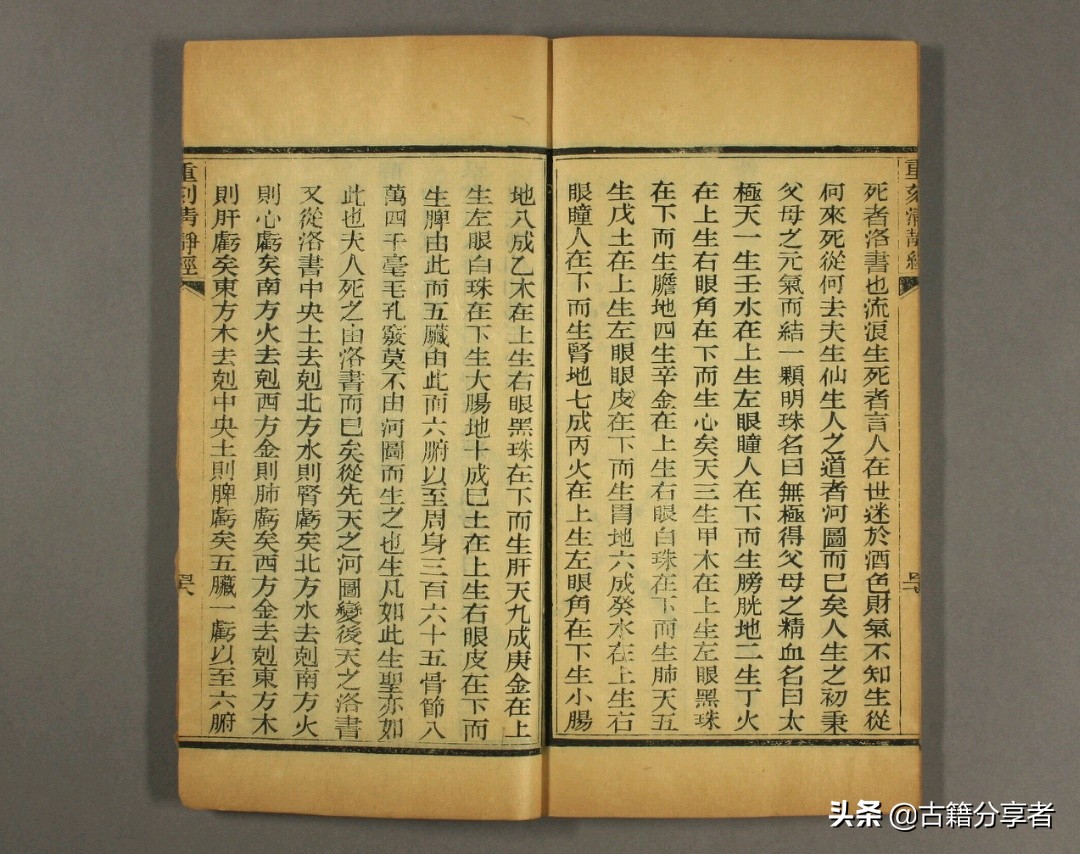 重刻清靜經
死者洛書也流浪生死者言人在世迷於酒色財氣不知生從
何來死從何去夫生仙生人之道者河圖而已矣人生之初秉
父母之元氣而結一顆明珠名曰無極得父母之精血名曰太
極天一生壬水在上生左眼瞳人在下而生膀胱地二生丁火
在上生右眼角在下而生心矣天三生甲木在上生左眼黑珠
在下而生膽地四生辛金在上生右眼白珠在下而生肺天五
生戊土在上生左眼眼皮在下而生胃地六成癸水在上生右
眼瞳人在下而生腎地七成丙火在上生左眼角在下生小腸
地八成乙木在上生右眼黑珠在下而生肝天九成庚金在上
生左眼白珠在下生大腸地十成巳土在上生右眼皮在下而
生脾由此而五臟由此而六腑以至周身三百六十五骨節八
萬四千毫毛孔竅莫不由河圖而生之也生凡如此生聖亦如
此也夫人死之由洛書而巳矣從先天之河圖變後天之洛書
又從洛書中央土去剋北方水則腎虧矣北方水去剋南方火
則心虧矣南方火去剋西方金則肺虧矣西方金去剋東方木
則肝虧矣東方木去剋中央土則脾虧矣五臟一虧以至六腑
重刻清靜經
头条 @古籍分享者